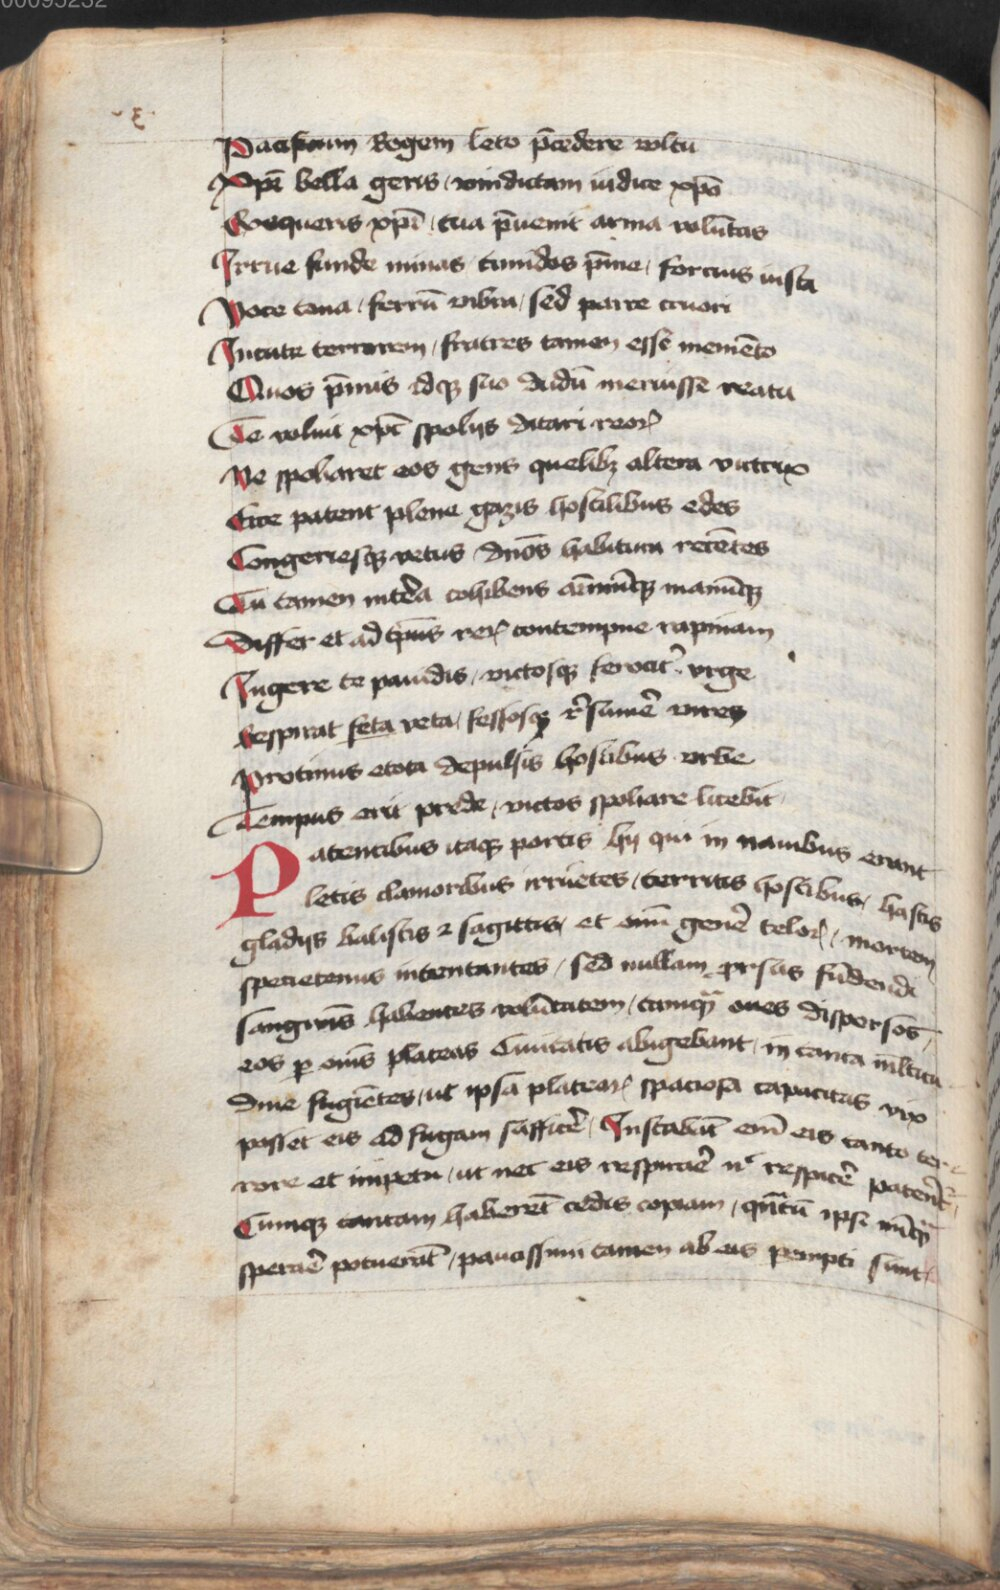 00095232
Pacificum Regem leto p̄cedere voltu
Xpi bella geris / vindictam iudice xpō
Exequeris xpī / tua p̄uenit arma volūtas
Irrue funde minas / timidos p̄me / forcius insta
Voce tona / ferrū vibra / sed parce cruori
Incute terrorem / fratres tamen esse memēto
Quos p̄mis idqꝫ suo dudū meruisse reatu
Te voluit xpc̄ spolijs ditari reoꝝ
Ne spoliaret eos gens quelibꝫ altera victrix
Ecce patent plene gazis hostilibus edes
Congeriesqꝫ vetus dn̄os habitura recētes
Tu tamen intēa cohibens aīmūqꝫ manūqꝫ
Differ et ad tp̄us reꝝ contempne rapinam
Ingere te pauidis / victosqꝫ ferocit᷑ vrge
Respirat feta veta / fessosqꝫ r̄sumē vires
Protinus etota depulsis hostibus vrbe
Tempus erit prede / victos spoliare licebit
Patentibus itaqꝫ portis hij qui in nauibus erant
letis clamoribus irruētes / territis hostibus / hastis
gladijs balistis ⁊ sagittis / et om̄i genē teloꝝ / mortem
specietenus intentantes / sed nullam ꝓrsus fūdendi
sanguīs habentes volūtatem / tamqᷓ oues dispersos /
eos ꝑ om̄s plateas Ciuitatis abigebant / in tanta m̄ltitu
dine fugiētes / ut ipsa plateaꝝ spaciosa capacitas vix
posset eis ad fugam sufficē / Instabāt em̄ eis tanto ter
rore et impetu / ut nec eis respirāē nᶜ respicē patēt
Cumqꝫ tantam haberēt cedis copiam / qn̄tū ipsi nūqᷓ
sperāē potuerāt / paucissimi tamen ab eis pempti sunt /